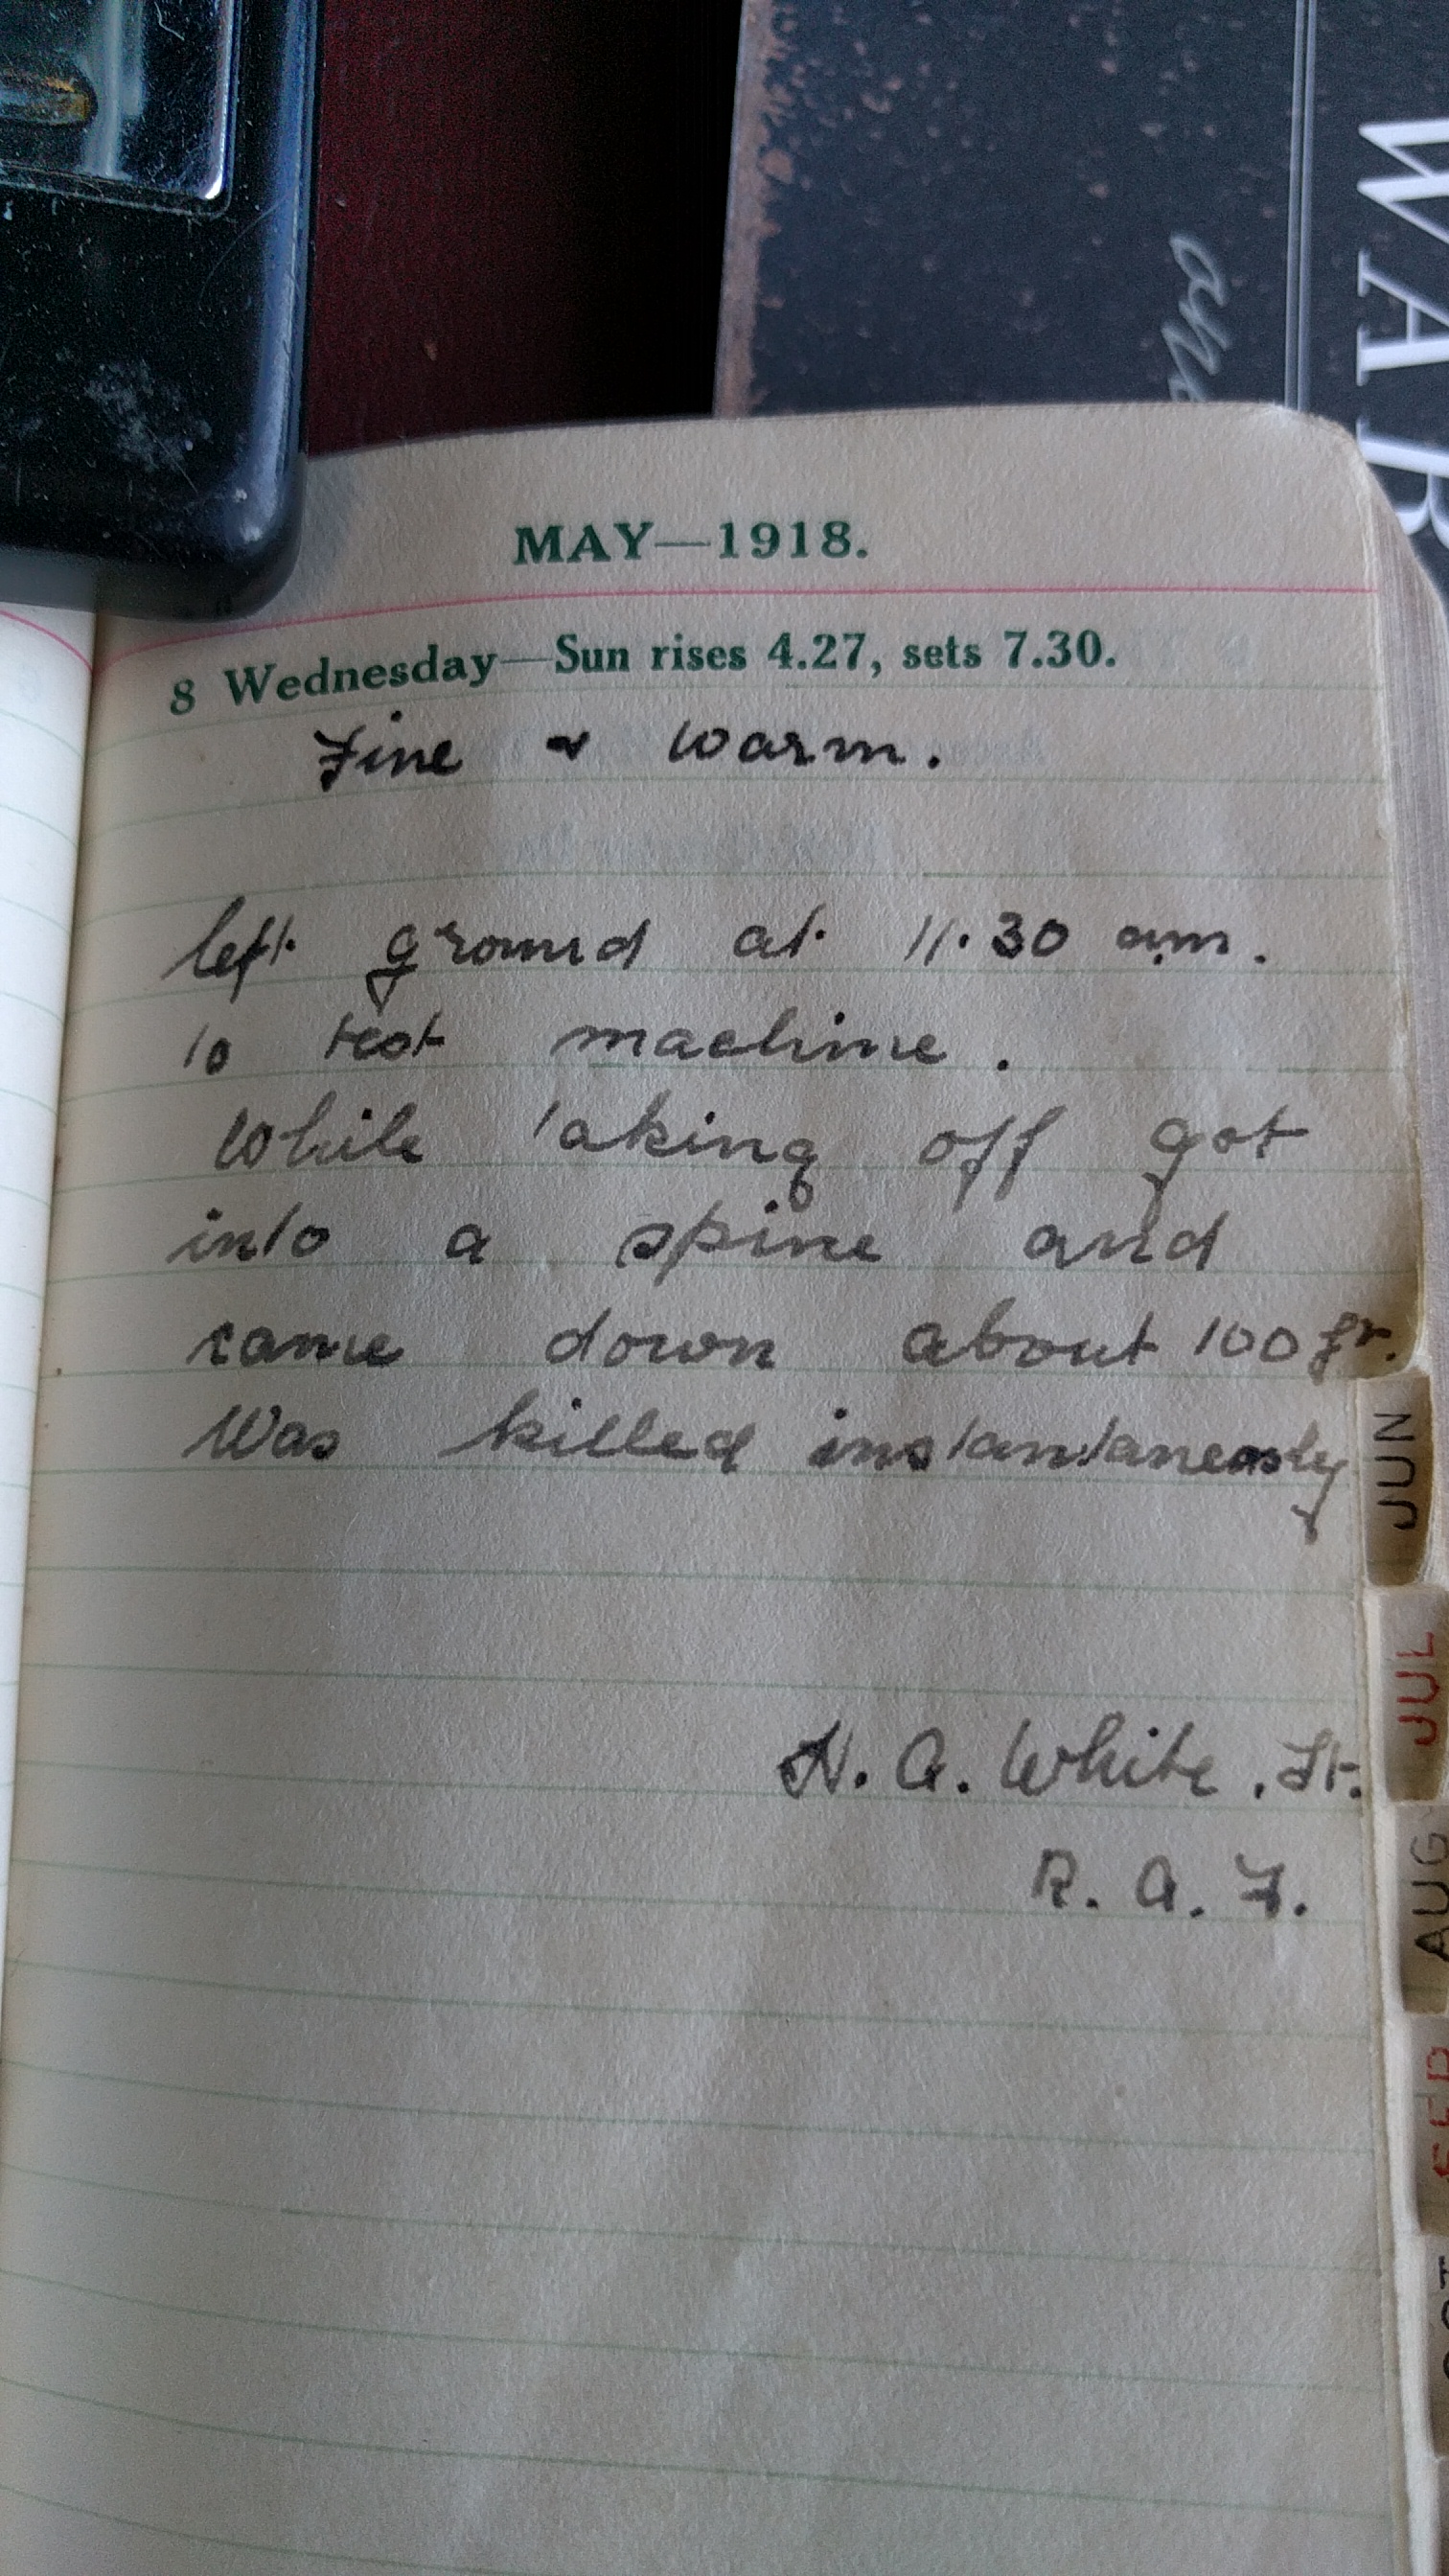 WAR
MAY—1918.
8 Wednesday—Sun rises 4.27, sets 7.30.
Fine & Warm.
left ground at 11.30 am.
to test machine.
While taking off got
into a spine and
came down about 100 ft.
Was killed instantaneosly
N. A. White. Lt.
R. A. F.
JUN
JUL
AUG
SEP